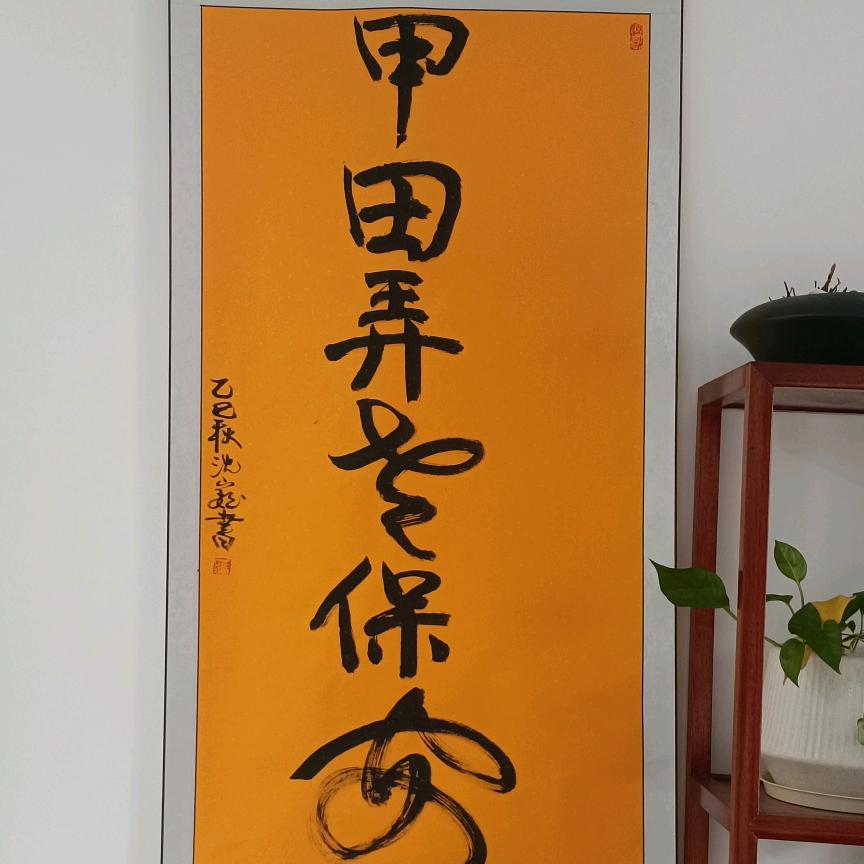 甲田弄老保安
乙巳秋沈巍書